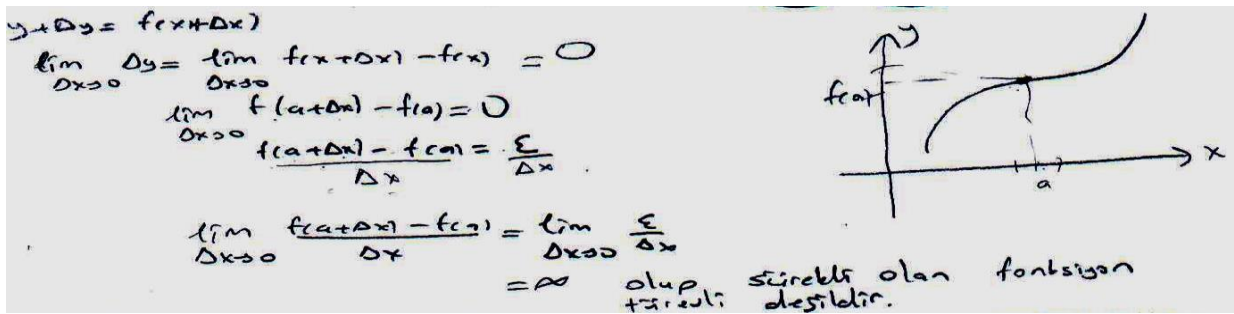 y+Δy = f(x+Δx)
lim Δx→0 Δy = lim Δx→0 f(x+Δx) - f(x) = 0
lim Δx→0 f(a+Δx) - f(a) = 0
f(a+Δx) - f(a) / Δx = ε / Δx
lim Δx→0 f(a+Δx) - f(a) / Δx = lim Δx→0 ε / Δx
= ∞ olup sürekli olan fonksiyon
türevli değildir.
y
f(a)
a
x